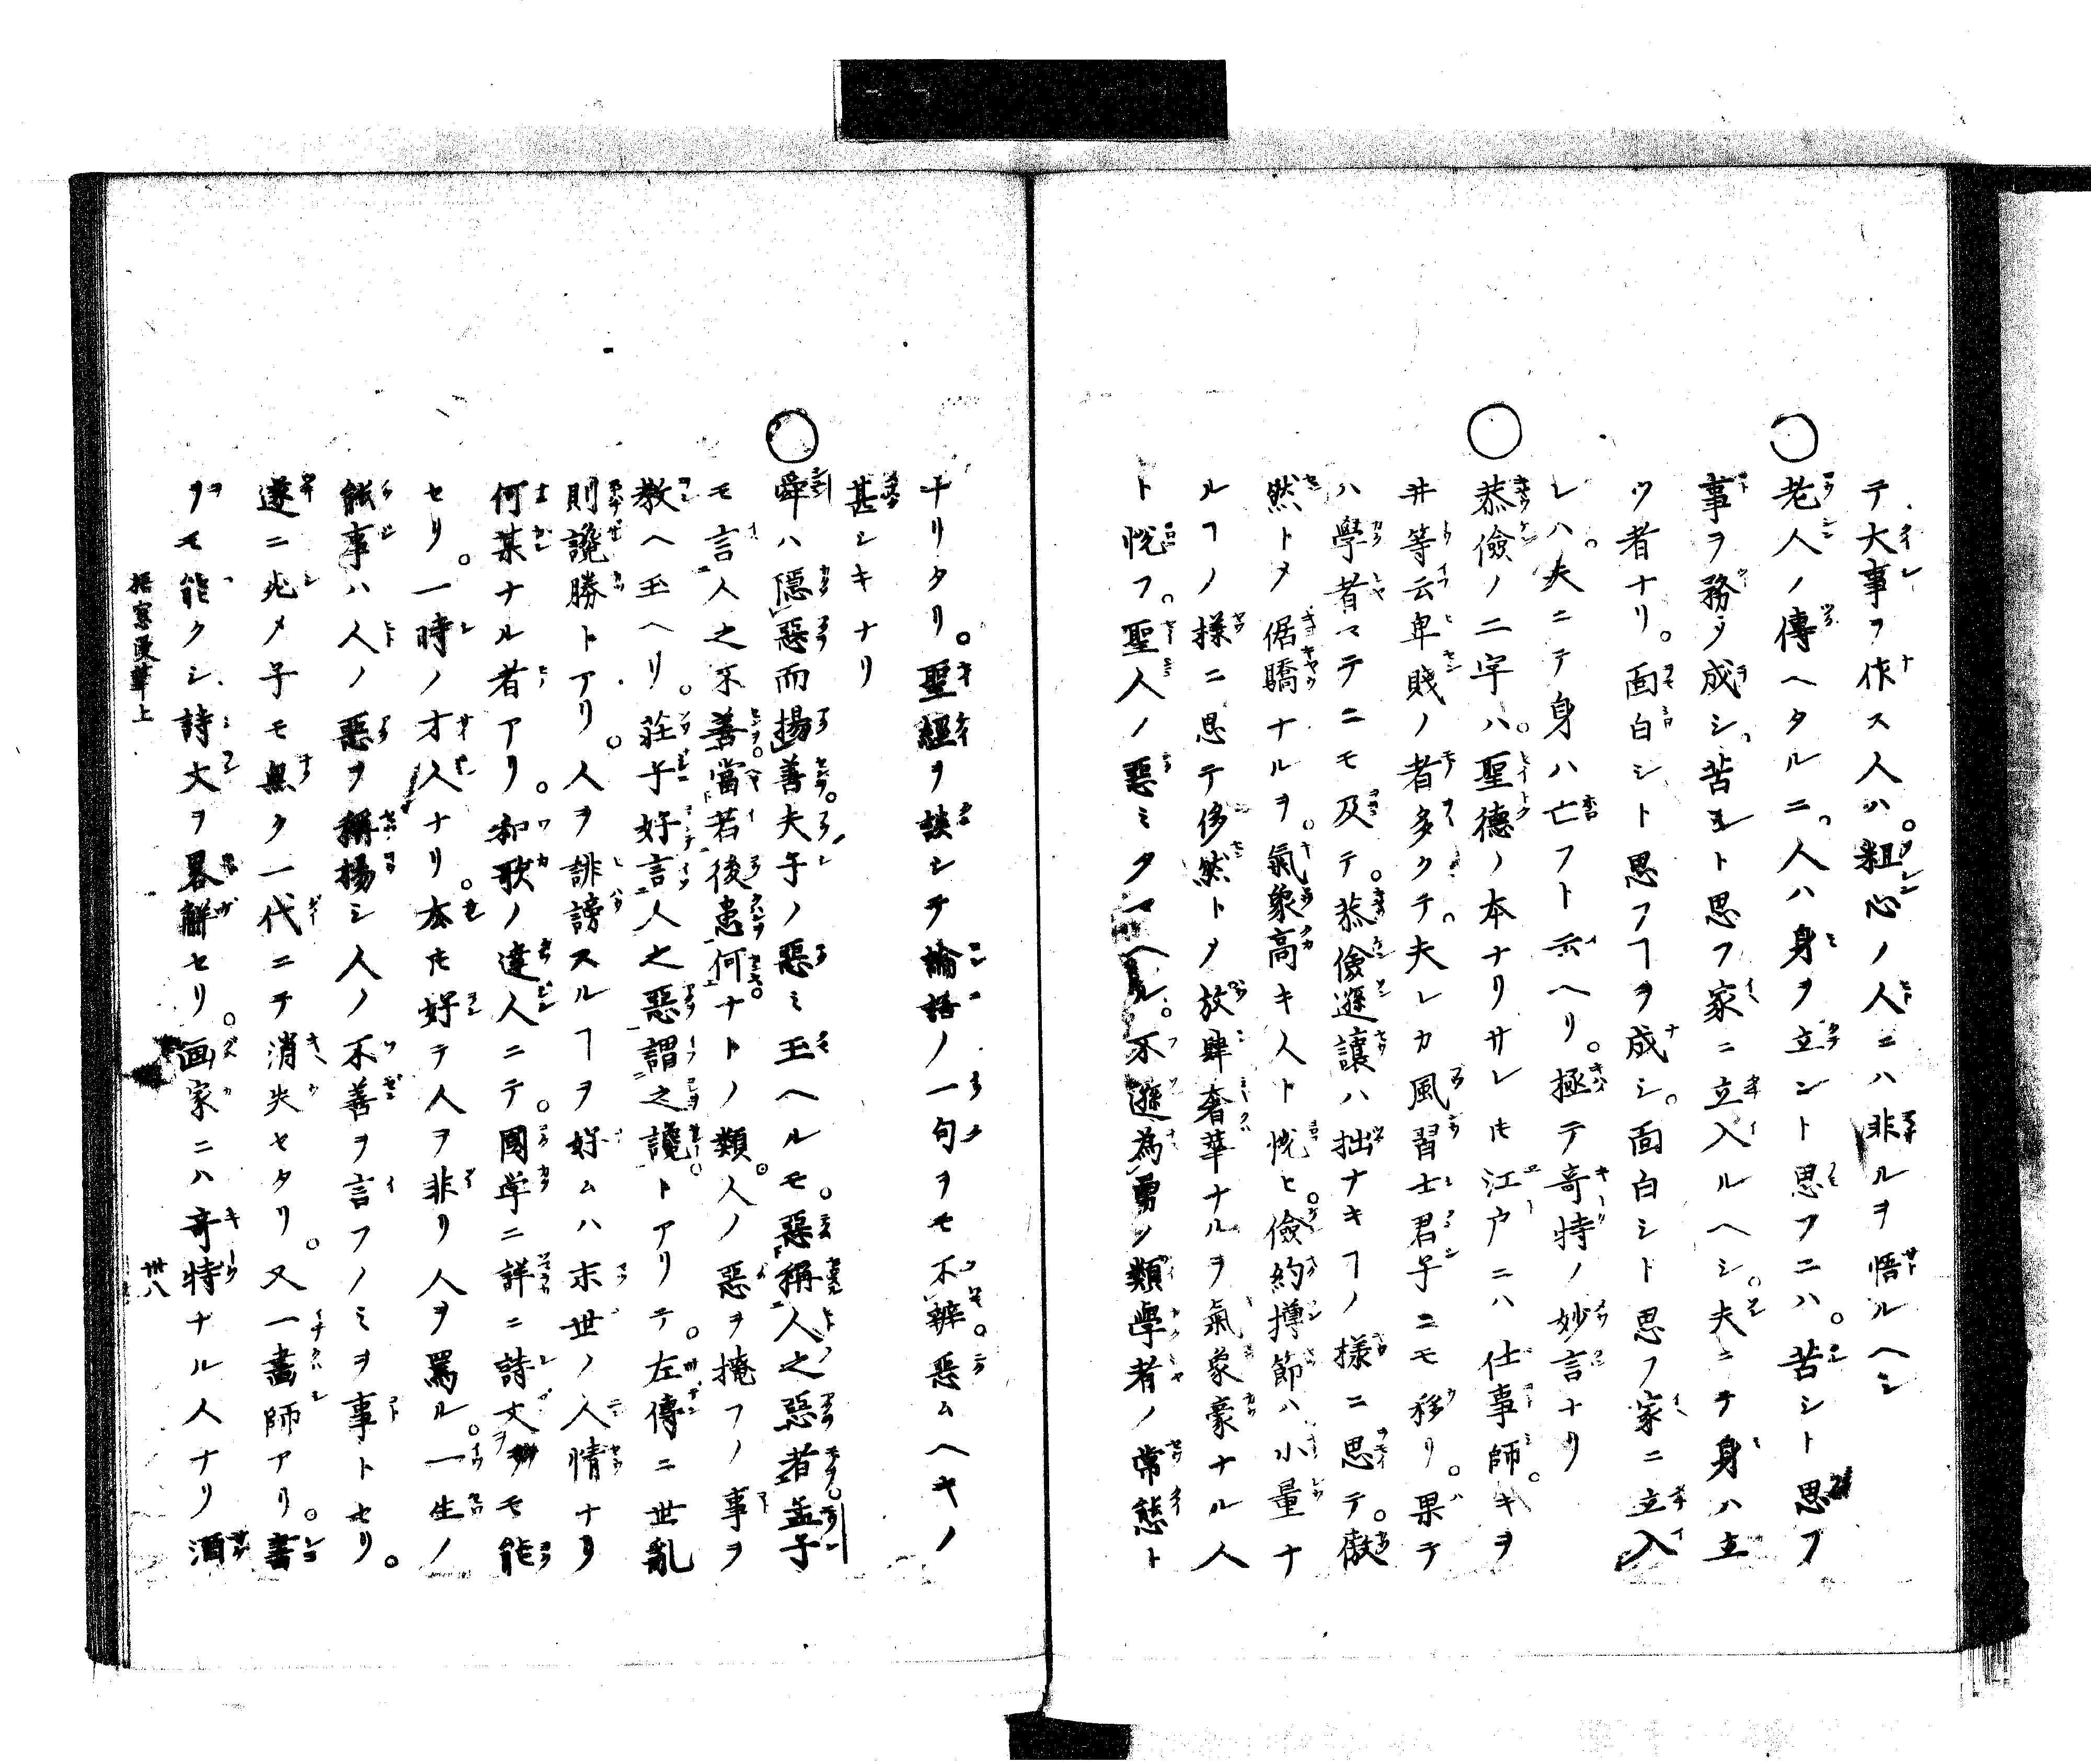 テ大事ヲ作ス人ハ。粗心ノ人ニハ非ルヲ悟ルヘシ
○老人ノ傳ヘタルニ。人ハ身ヲ立ント思フニハ。苦シト思フ
事ヲ務メ成シ。苦シト思フ家ニ立入ルヘシ。夫ニテ身ハ立
ツ者ナリ。面白シト思フヿヲ成シ。面白シト思フ家ニ立入
レハ。夫ニテ身ハ亡フト云ヘリ。極テ奇特ノ妙言ナリ
○恭儉ノ二字ハ。聖德ノ本ナリサレ𪜈江戸ニハ仕事師。キヲ
井等云卑賎ノ者多クテ。夫レカ風習士君子ニモ移リ。果テ
ハ學者マテニモ及テ。恭儉遜讓ハ拙ナキヿノ様ニ思テ。傲
然トメ倨驕ナルヲ。氣象高キ人ト悦ヒ。儉約撙節ハ小量ナ
ルヿノ様ニ思テ侈然トメ放肆奢華ナルヲ氣象豪ナル人
ト悦フ。聖人ノ惡ミタマヘル。不遜為勇ノ類學者ノ常態ト
ナリタリ。聖經ヲ談シテ論語ノ一句ヲモ不辨。惡ムヘキノ
甚シキナリ
○舜ハ隱惡而揚善夫子ノ惡ミ玉ヘルモ。惡稱人之惡者孟子
モ言人之不善當若後患何ナトノ類。人ノ惡ヲ掩フノ事ヲ
教ヘ玉ヘリ。莊子好言人之惡謂之讒トアリテ。左傳ニ世亂
則讒勝トアリ。人ヲ誹謗スルヿヲ好ムハ末世ノ人情ナリ
何某ナル者アリ。和歌ノ達人ニテ。國学ニ詳ニ詩文ヲモ能
セリ。一時ノ才人ナリ。尓𪜈好テ人ヲ非リ人ヲ罵ル。一生ノ
能事ハ人ノ惡ヲ稱揚シ人ノ不善ヲ言フノミヲ事トセリ。
遂ニ死メ子モ無ク一代ニテ消失セタリ。又一畫師アリ。書
ヲモ能クシ詩文ヲ畧解セリ。画家ニハ奇特ナル人ナリ酒
梧窓漫筆上
卅八